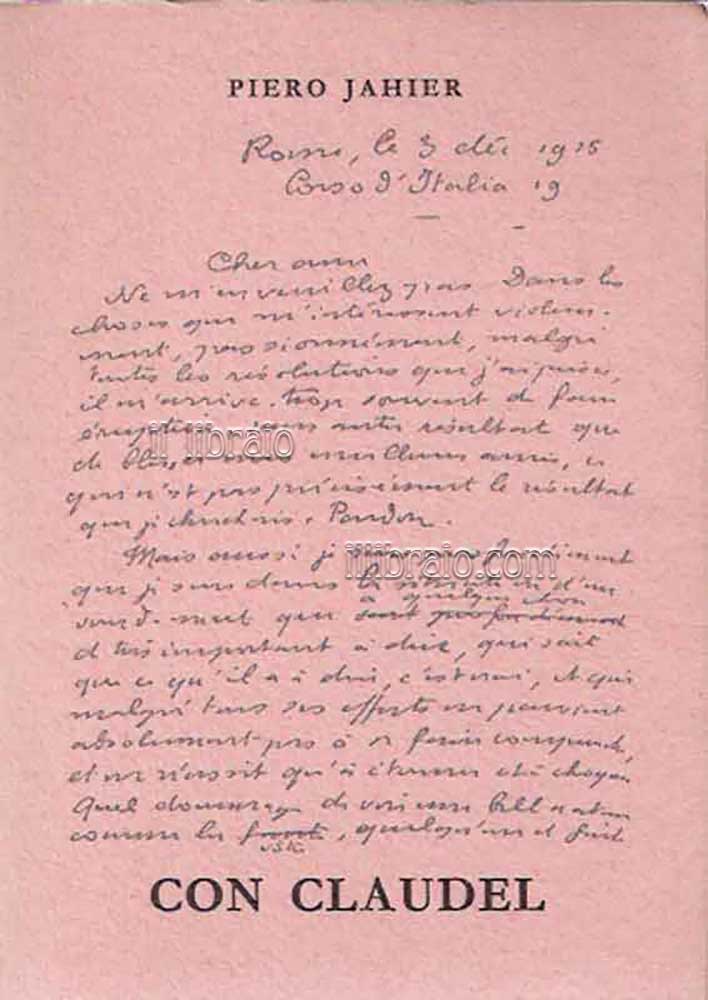 PIERO JAHIER
Rome, le 3 déc 1915
Corso d'Italia 19
Cher ami
Ne m'en veuillez pas Dans les
choses qui m'intéressent violem-
ment, passionnément, malgré
toutes les résolutions que j'ai prises,
il m'arrive trop souvent de faire
éruption sans autre résultat que
de blesser mes meilleurs amis, ce
qui n'est pas précisément le résultat
que je cherchais. Pardon.
il libraio
Mais aussi je
illibraio.com
que je suis dans la situation d'un
sourd-muet qui a quelque chose
d très important à dire, qui sait
que ce qu'il a à dire, c'est vrai, et qui
malgré tous ses efforts ne parvient
absolument pas à se faire comprendre,
et ne réussit qu'à étonner et à choquer
Quel dommage de voir une belle nation
comme la, quelqu'un
CON CLAUDEL